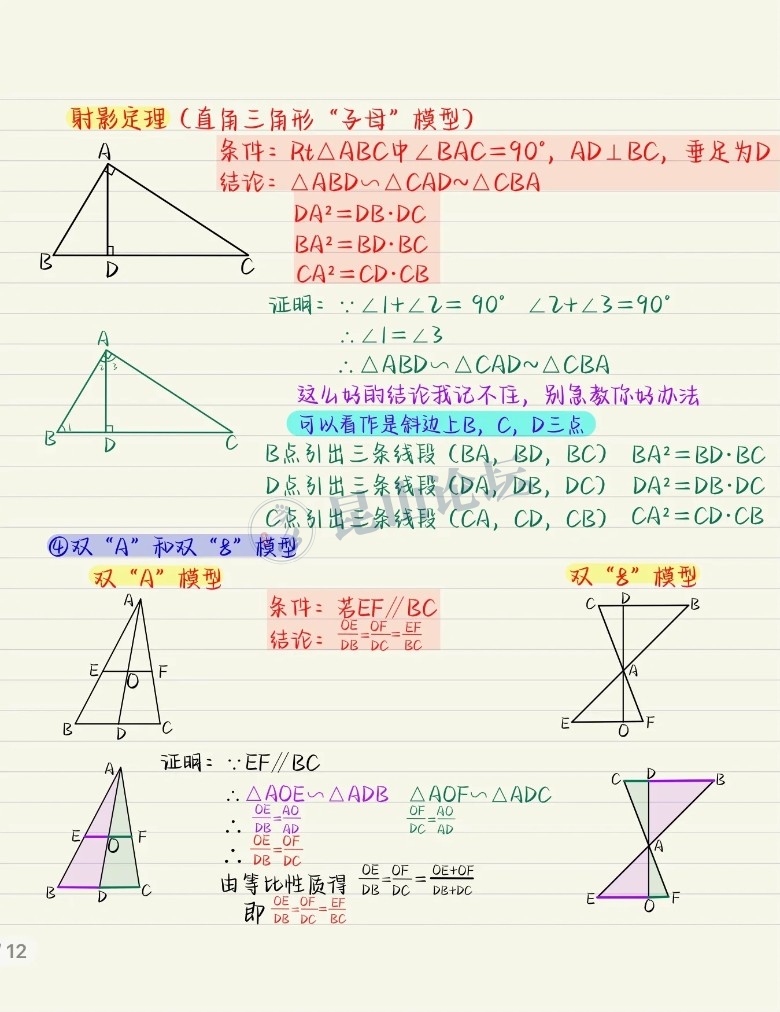 射影定理(直角三角形“子母”模型)
条件: Rt△ABC中∠BAC=90°, AD⊥BC, 垂足为D
结论: △ABD∽△CAD~△CBA
DA²=DB·DC
BA²=BD·BC
CA²=CD·CB
A
B
D
C
证明: ∵∠1+∠2=90° ∠2+∠3=90°
∴∠1=∠3
∴△ABD∽△CAD~△CBA
A
2 3
B 1
D
C
这么好的结论我记不住, 别急教你好办法
可以看作是斜边上B, C, D三点
B点引出三条线段(BA, BD, BC) BA²=BD·BC
D点引出三条线段(DA, DB, DC) DA²=DB·DC
C点引出三条线段(CA, CD, CB) CA²=CD·CB
昆山论坛
④双“A”和双“8”模型
双“A”模型
双“8”模型
条件: 若EF∥BC
结论: OE/DB=OF/DC=EF/BC
A
E O F
B D C
C D B
A
E O F
证明: ∵EF∥BC
∴△AOE∽△ADB △AOF∽△ADC
∴OE/DB=AO/AD OF/DC=AO/AD
∴OE/DB=OF/DC
由等比性质得 OE/DB=OF/DC=OE+OF/DB+DC
即 OE/DB=OF/DC=EF/BC
A
E O F
B D C
C D B
A
E O F
12